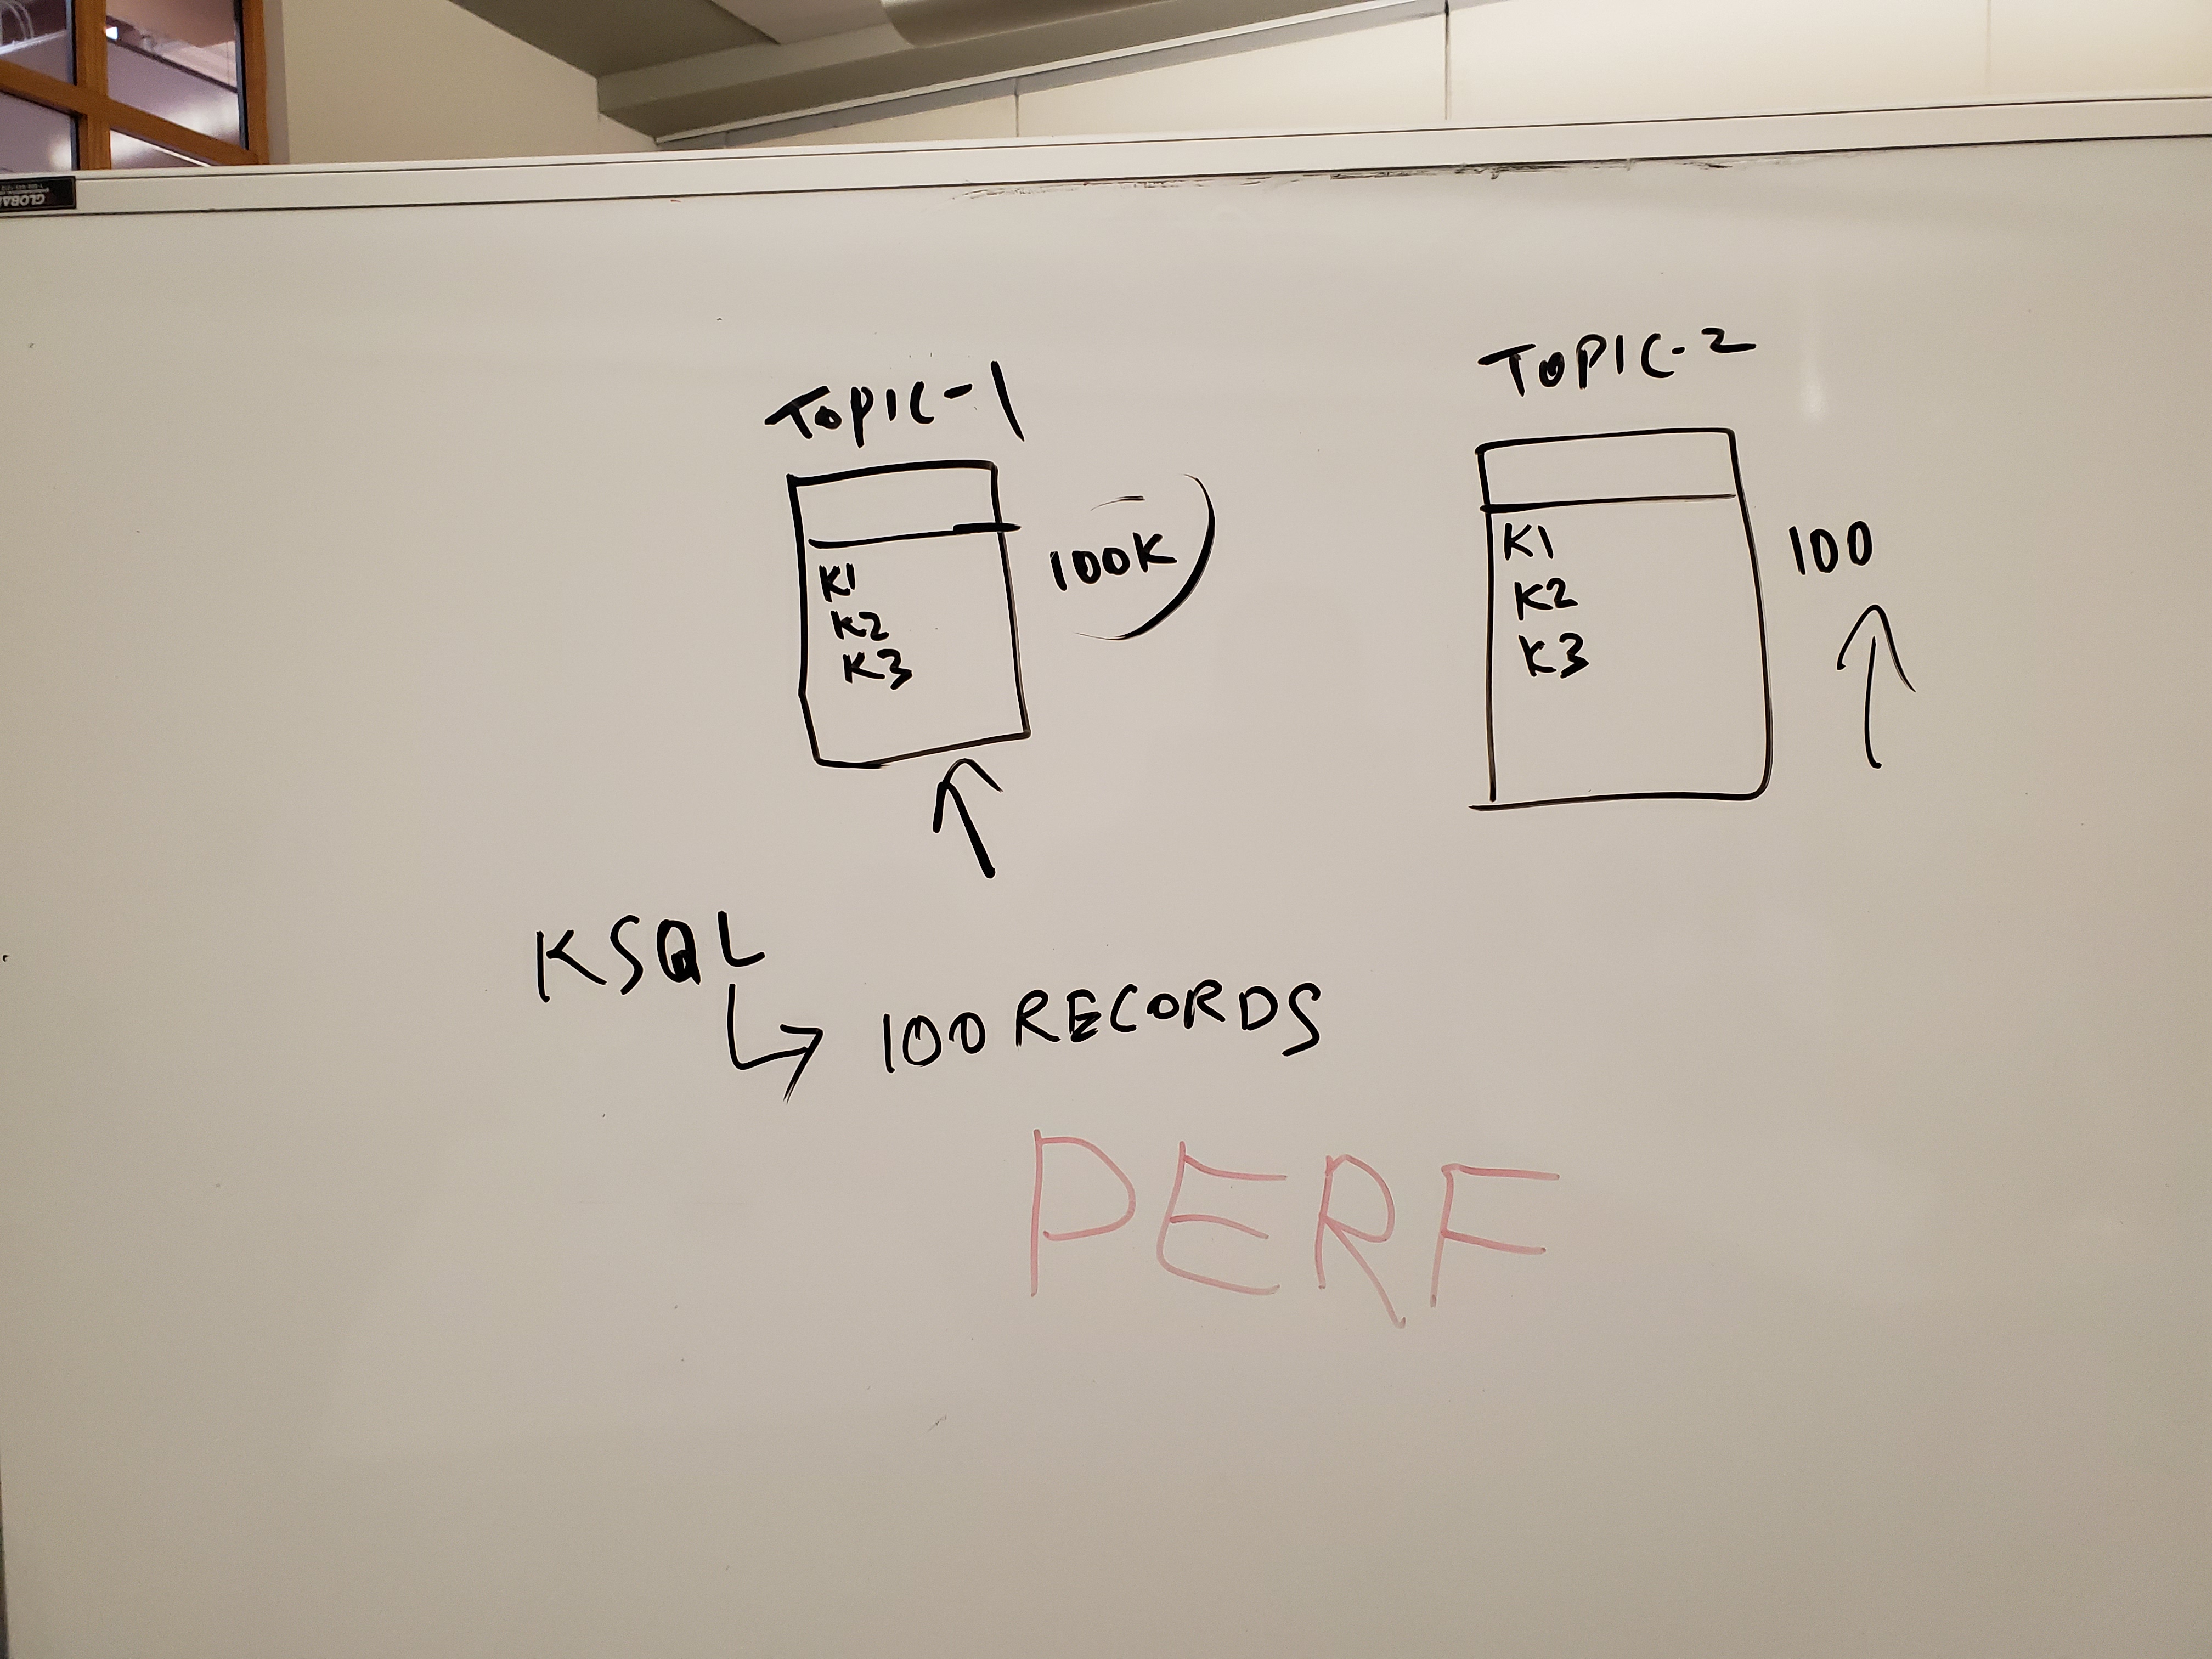 TOPIC-1
K1
K2
K3
100K
TOPIC-2
K1
K2
K3
100
KSQL
100 RECORDS
PERF